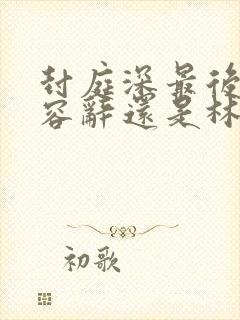 封庭深最後
容辭還是林
初歌